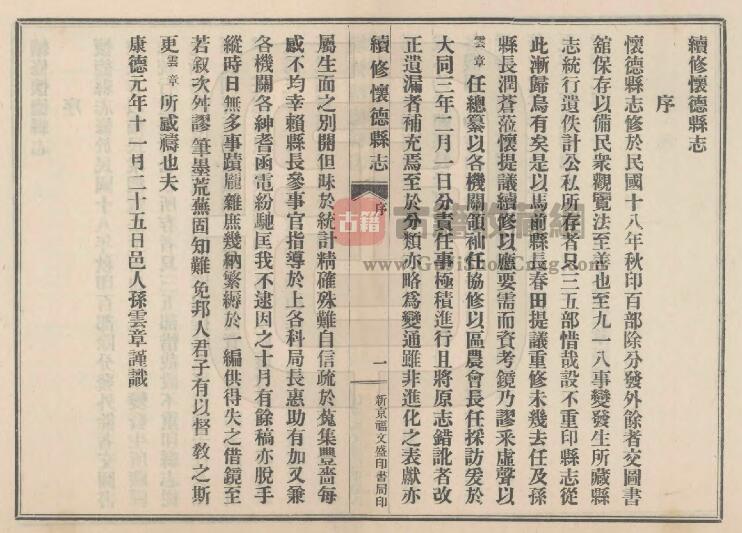 續修懷德縣志
序
懷德縣志修於民國十八年秋印百部除分發外餘者交圖書
舘保存以備民衆觀覽法至善也至九一八事變發生所藏縣
志統行遺佚計公私所存者只三五部惜哉設不重印縣志從
此漸歸烏有矣是以馬前縣長春田提議重修未幾去任及孫
縣長潤蒼蒞懷提議續修以應要需而資考鏡乃謬釆虛聲以
雲章任總纂以各機關領袖任協修以區農會長任採訪爰於
大同三年二月一日分責任事極積進行且將原志錯訛者改
正遺漏者補充焉至於分類亦略爲變通雖非進化之表獻亦
續修懷德縣志
序
一
新京福文盛印書局印
屬生面之別開但昧於統計精確殊難自信疏於蒐集豐嗇每
感不均幸賴縣長參事官指導於上各科局長惠助有加又兼
各機關各紳耆函電紛馳匡我不逮因之十月有餘稿亦脫手
縱時日無多事蹟龐雜庶幾納繁縟於一編供得失之借鏡至
若叙次舛謬筆墨荒蕪固知難免邦人君子有以督敎之斯
更雲章所感禱也夫
康德元年十一月二十五日邑人孫雲章謹識
古籍
古籍收藏網